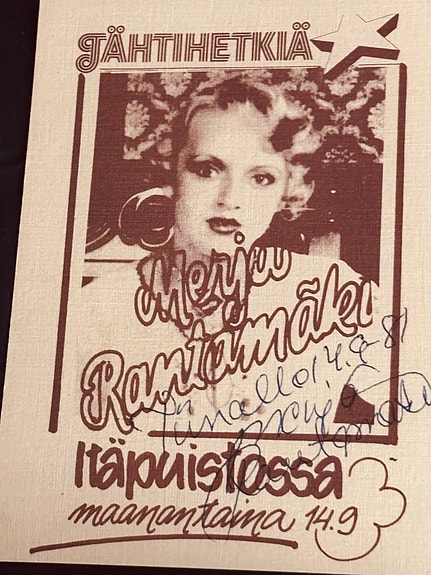 TÄHTIHETKIÄ
Merja
Rantamäki
Tiinalla 14.9-81
Merja
Rantamäki
Itäpuistossa
maanantaina 14.9